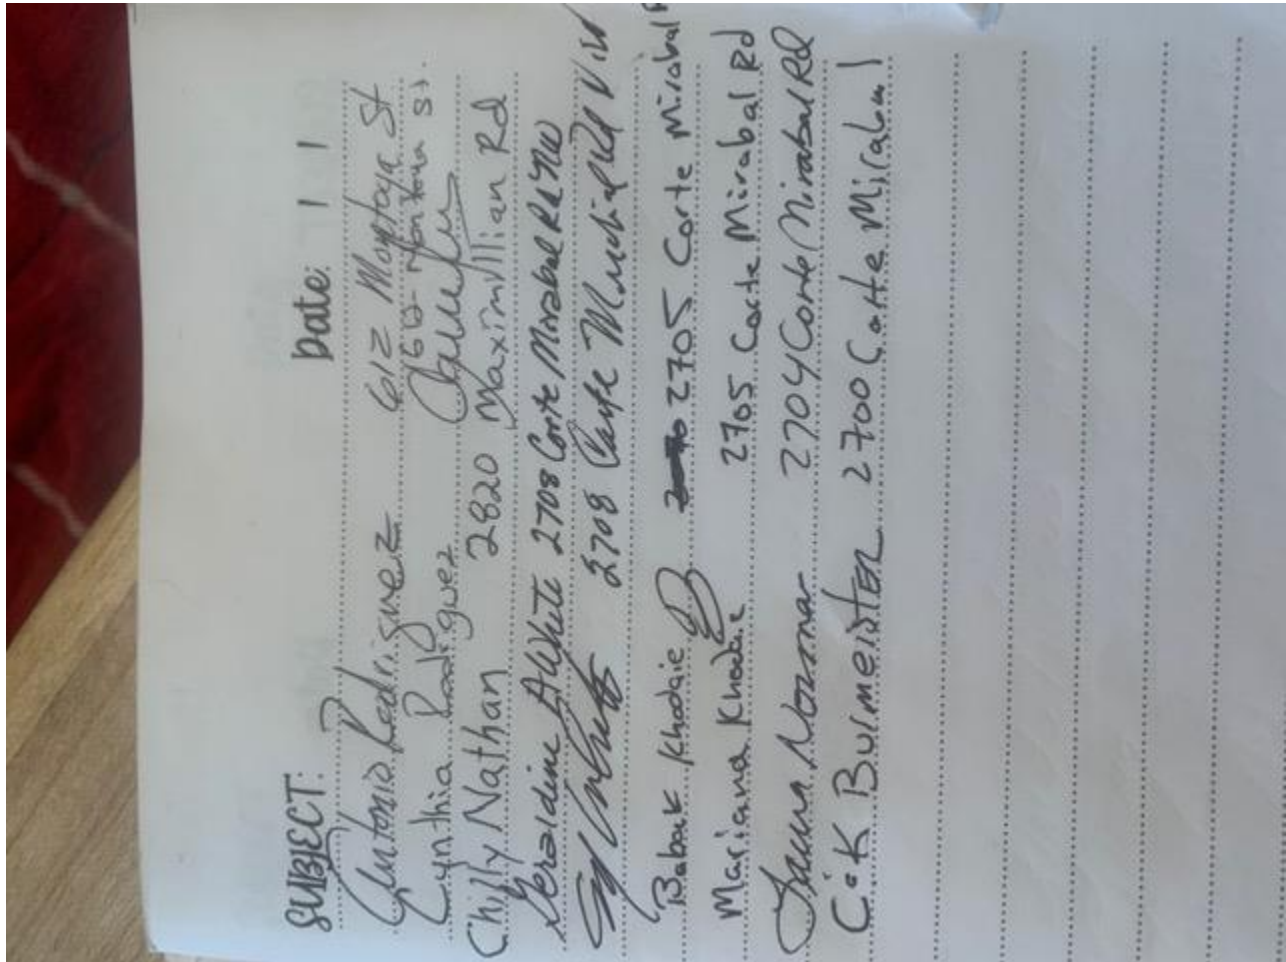 SUBJECT: Date: / /
Antonio Rodriguez 612 Montoya St
Cynthia Rodriguez 612 Montoya St.
Chilly Nathan 2820 Maximillian Rd
Geraldine A White 2708 Corte Mirabal Rd NW
2708 Corte
Babak Khodaie 2705 Corte Mirabal
Mariana Khodaie 2705 Corte Mirabal Rd
Norman 2704 Corte Mirabal Rd
C & K Burmeister 2700 Corte Mirabal